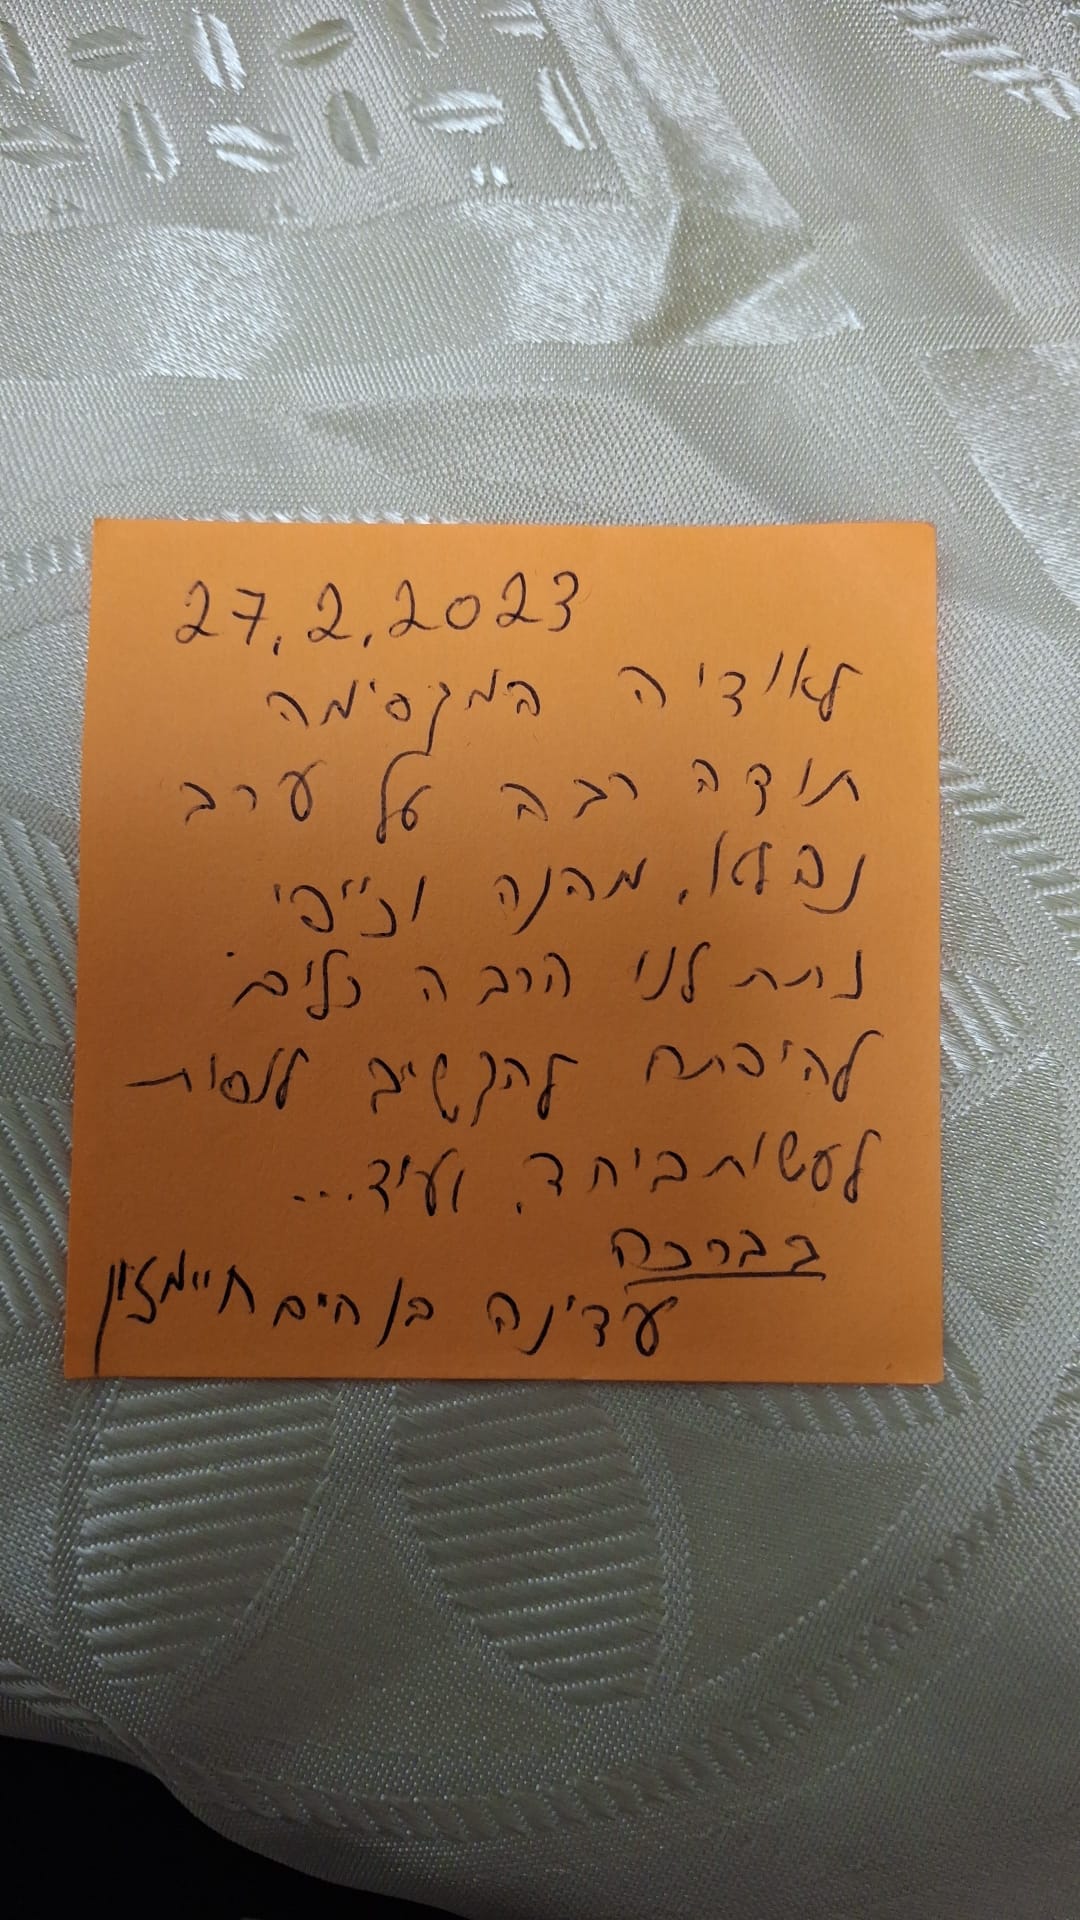 27.2.2023
לאודיה המקסימה
תודה רבה על ערב
נפלא, מהנה וכייפי
נתת לנו הרבה כלים
להיפתח להקשיב לנסות
לעשות ביחד. ועוד...
בברכה
עדינה בן חיים חיימזון